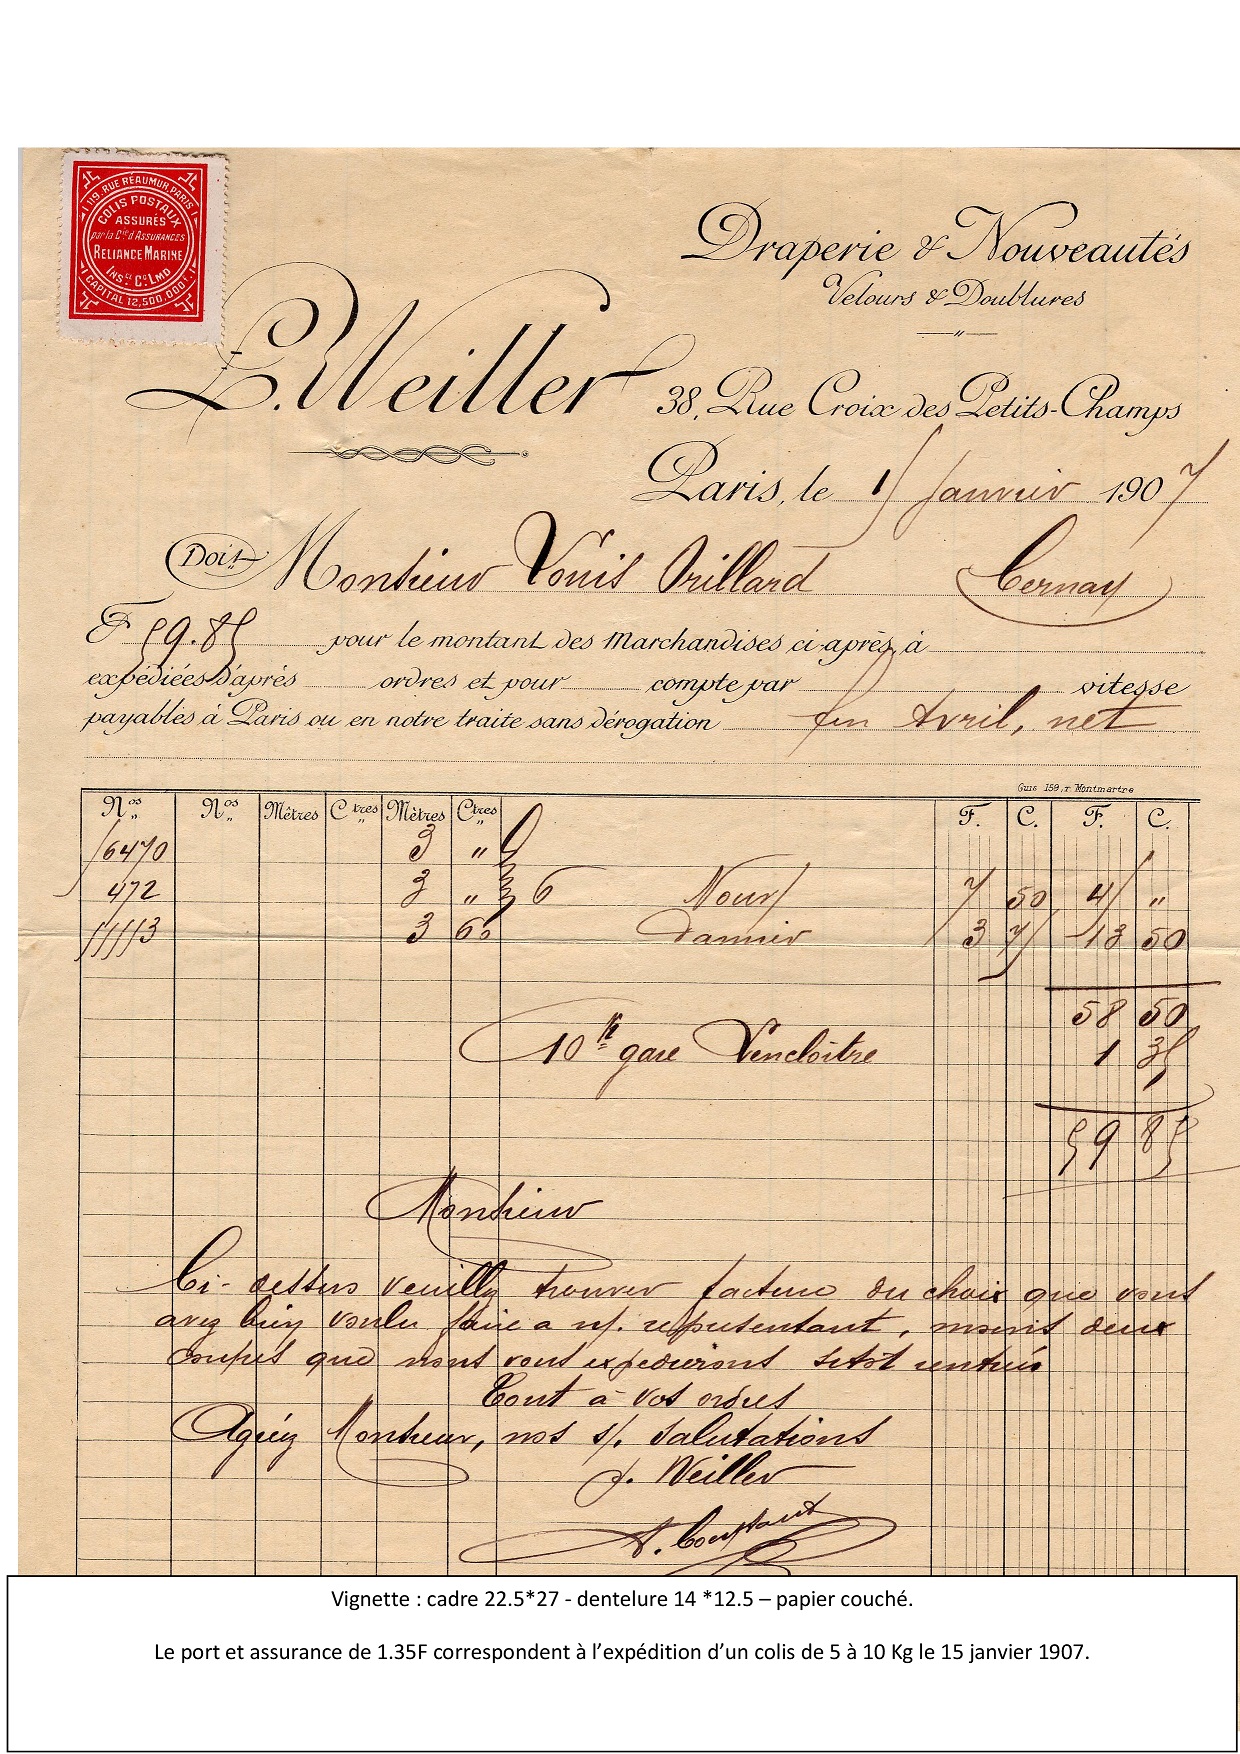 119, RUE RÉAUMUR, PARIS
COLIS POSTAUX
ASSURÉS
par la Cie d'ASSURANCES
RELIANCE MARINE
INSce Co LMD
CAPITAL 12,500,000f.
Draperie & Nouveautés
Velours & Doublures
L. Weiller
38, Rue Croix des Petits-Champs
Paris, le 15 Janvier 1907
Doit Monsieur Louis Brillard Cernay
F 59.85 pour le montant des Marchandises ci-après, à
expédiées d'après ordres et pour compte par vitesse
payables à Paris ou en notre traite sans dérogation fin Avril, net
Guis 159, r. Montmartre
Nos Nos Mètres Ctres Mètres Ctres F. C. F. C.
16470 3 "
472 3 " 6 Nouv 7 50 45 "
55553 3 60 Damier 3 75 13 50
58 50
10 k gare Lencloître 1 35
59 85
Monsieur
Ci-dessus veuillez trouver facture du choix que vous
avez bien voulu faire a n/. représentant, moins deux
coupes que nous vous expédierons sitôt rentrées
Tout à vos ordres
Agréez Monsieur, nos s/. salutations
Weiller
Vignette : cadre 22.5*27 - dentelure 14 *12.5 – papier couché.
Le port et assurance de 1.35F correspondent à l'expédition d'un colis de 5 à 10 Kg le 15 janvier 1907.